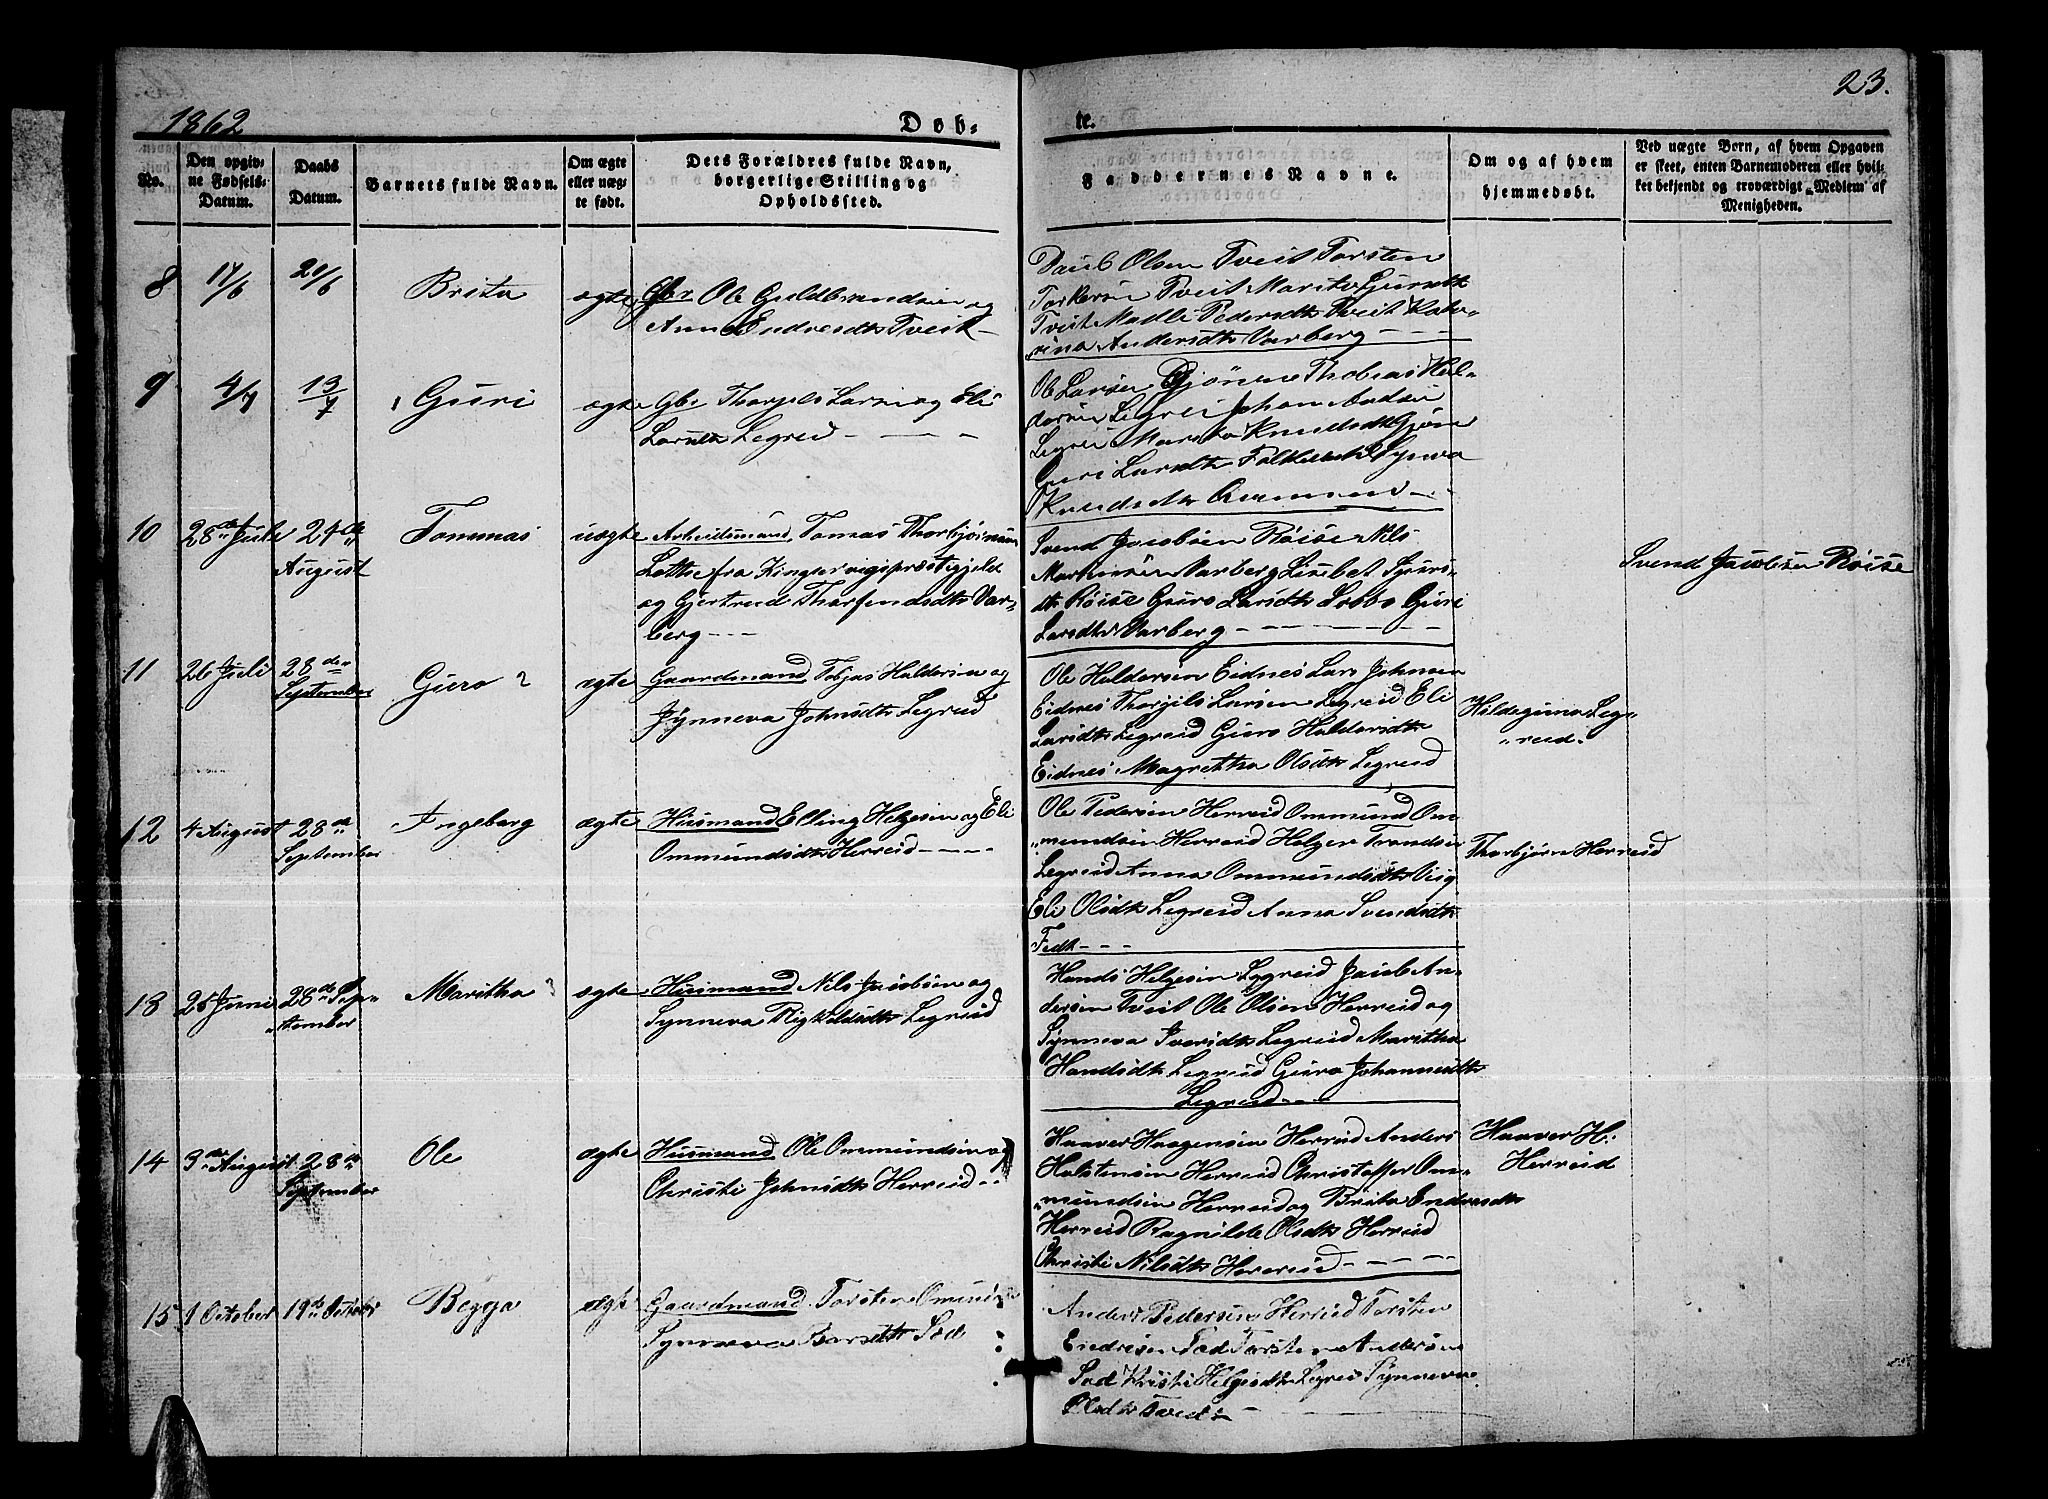 1862
Døb-
te.
23.
No.
Den opgiv-
ne Fødsels-
Datum.
Daabs
Datum.
Barnets fulde Navn.
Om ægte
eller uæg-
te født.
Dets Forældres fulde Navn,
borgerlige Stilling og
Opholdssted.
Faddernes Navne.
Om og af hvem
hjemmedøbt.
Ved uægte Børn, af hvem Opgaven
er skeet, enten Barnemoderen eller hvil-
ket bekjendt og troværdigt Medlem af
Menigheden.
8
17/6
29/6
Brita
ægte
Gbr Ole Guldbrandsen og
Anna Endresdtr Tveit
Olsen Tveit Torsten
Tveit Marita
Tveit Madli Pedersdtr Tveit Kata-
rina Andersdtr Varberg
9
4/7
13/7
Guri
ægte
Gbr Thorgils Larsen og Eli
Larsdtr Legreid
Ole Larsen Djönne Thobias Hal-
dorsen Legrei Johan
Legrei Marita Knudsdtr
Guri Larsdtr Synva
Knudsdtr
10
28de Juli
24de
August
Tommas
uægte
Arbeidsmand Tomas Thorbjørnsen
Lotte fra Kingservigs præstegjeld
og Gjertrud Thorfendsdtr Var-
berg
Svend Jacobsen Röise Nils
Martinsen Varberg Lisabet Sjurs-
dtr Röise Guro Larsdtr Lobbo Guri
Larsdtr Varberg
Svend Jacobsen Röise
11
26 Juli
28de
September
Guro
ægte
Gaardmand Tobjas Haldorsen og
Synneva Johnsdtr Legreid
Ole Haldorsen Eidnes Lars Johannes
Eidnes Thorgils Larsen Legreid Eli
Larsdtr Legreid Guro Haldorsdtr
Eidnes Magretha Olsdtr Legreid
Hildeguna Leg-
reid
12
4 August
28de
September
Ingeborg
ægte
Husmand Elling Helgesen og Eli
Ommundsdtr Herreid
Ole Pedersen Herreid Ommund Om-
mundsen Herreid Helge Trondsen
Legreid Anna Ommundsdtr
Eli Olsdtr Legreid Anna Svendsdtr
Fedt
Thorbjørn Herreid
13
25 Juni
28de Sep-
tember
Maritha
ægte
Husmand Nils Jacobsen og
Synneva Legreid
Hands Helgesen Legreid Jacob An-
dersen Tveit Ole Olsen Herreid og
Synneva Iversdtr Legreid Maritha
Handsdtr Legreid Guro Johannesdtr
Legreid
14
3de August
28de
September
Ole
ægte
Husmand Ole Ommundsen og
Christi Johnsdtr Herreid
Haaver Haagensen Herreid Anders
Halstensen Herreid Christoffer Om-
mundsen Herreid og Brita Endresdtr
Herreid Ragnilde Olsdtr Herreid
Christi Nilsdtr Herreid
Haaver H:
Herreid
15
1 October
19de October
Begga
ægte
Gaardmand Torsten
Synneva
Anders Pedersen Herreid Torsten
Endresen Torsten Andersen
Kristi Helgesdtr Legrei Synneva
Olsdtr